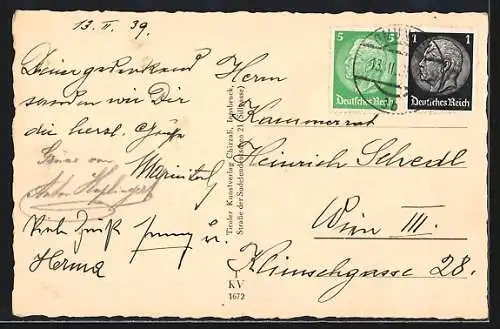 13. II. 39.
Deiner gedenkend
senden wir Dir
die herzl. Grüße
Grüße von
Viele Grüße u.
Herma
Herrn
Kammerrat
Heinrich Schedl
Wien III.
Klimschgasse 28.
Tiroler Kunstverlag Chizzali, Innsbruck,
Straße der Sudetendeutschen 21 (Sillgasse)
1
KV
1672
5 5
Deutsches Reich
1 1
Deutsches Reich
13.II.